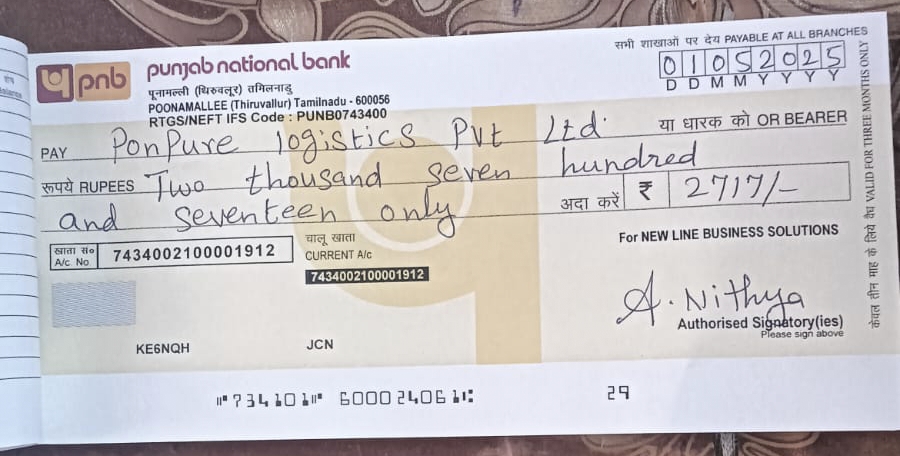 सभी शाखाओं पर देय PAYABLE AT ALL BRANCHES
pnb punjab national bank
0 1 0 5 2 0 2 5
D D M M Y Y Y Y
पूनामल्ली (थिरुवलूर) तमिलनाडु
POONAMALLEE (Thiruvallur) Tamilnadu - 600056
RTGS/NEFT IFS Code : PUNB0743400
PAY PonPure logistics Pvt Ltd. या धारक को OR BEARER
रूपये RUPEES Two thousand seven hundred
and seventeen only अदा करें ₹ 2717/-
खाता सं०
A/c No. 7434002100001912
चालू खाता
CURRENT A/c
7434002100001912
For NEW LINE BUSINESS SOLUTIONS
A. Nithya
Authorised Signatory(ies)
Please sign above
KE6NQH JCN
⑈734101⑈ 600024061⑆ 29
केवल तीन माह के लिये वैध VALID FOR THREE MONTHS ONLY